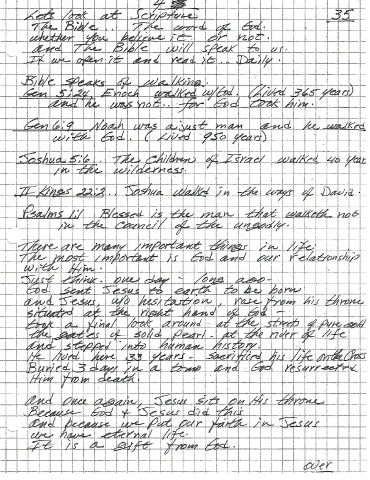 4
Let's look at Scripture 35
The Bible. The word of God.
whether you believe it or not.
and The Bible will speak to us.
If we open it and read it.. Daily.
Bible speaks of walking.
Gen 5:24. Enoch walked w/God. (Lived 365 years)
and he was not.. for God took him.
Gen 6:9 Noah was a just man and he walked
with God. (Lived 950 years)
Joshua 5:6.. The Children of Israel walked 40 year
in the wilderness.
II Kings 22:2.. Joshua walked in the ways of David.
Psalms 1:1 Blessed is the man that walketh not
in the council of the ungodly.
There are many important things in life.
The most important is God and our relationship
with Him.
Just think.. one day - long ago-
God sent Jesus to earth to be born
and Jesus, w/o hesitation, rose from his throne
situated at the right hand of God -
took a final look around at the streets of pure gold
the gates of solid pearl - at the river of life
and stepped into human history.
He lived here 33 years - Sacrificed his life on the Cross
Buried 3 days in a tomb and God resurrected
Him from death.
And once again, Jesus sits on His throne
Because God & Jesus did this
and because we put our faith in Jesus
we have eternal life.
It is a gift from God.
over